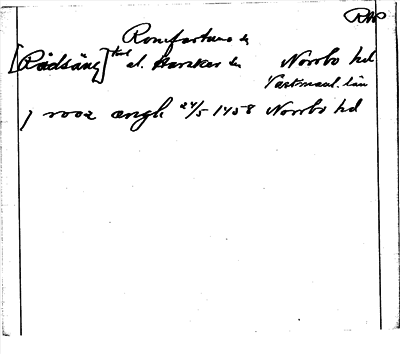 RAP
Romfartuna sn
[Rådsäng] tvl el. Harakers sn Norrbo hd
Västmanl. län
j rooz ængh 24/5 1458 Norrbo hd